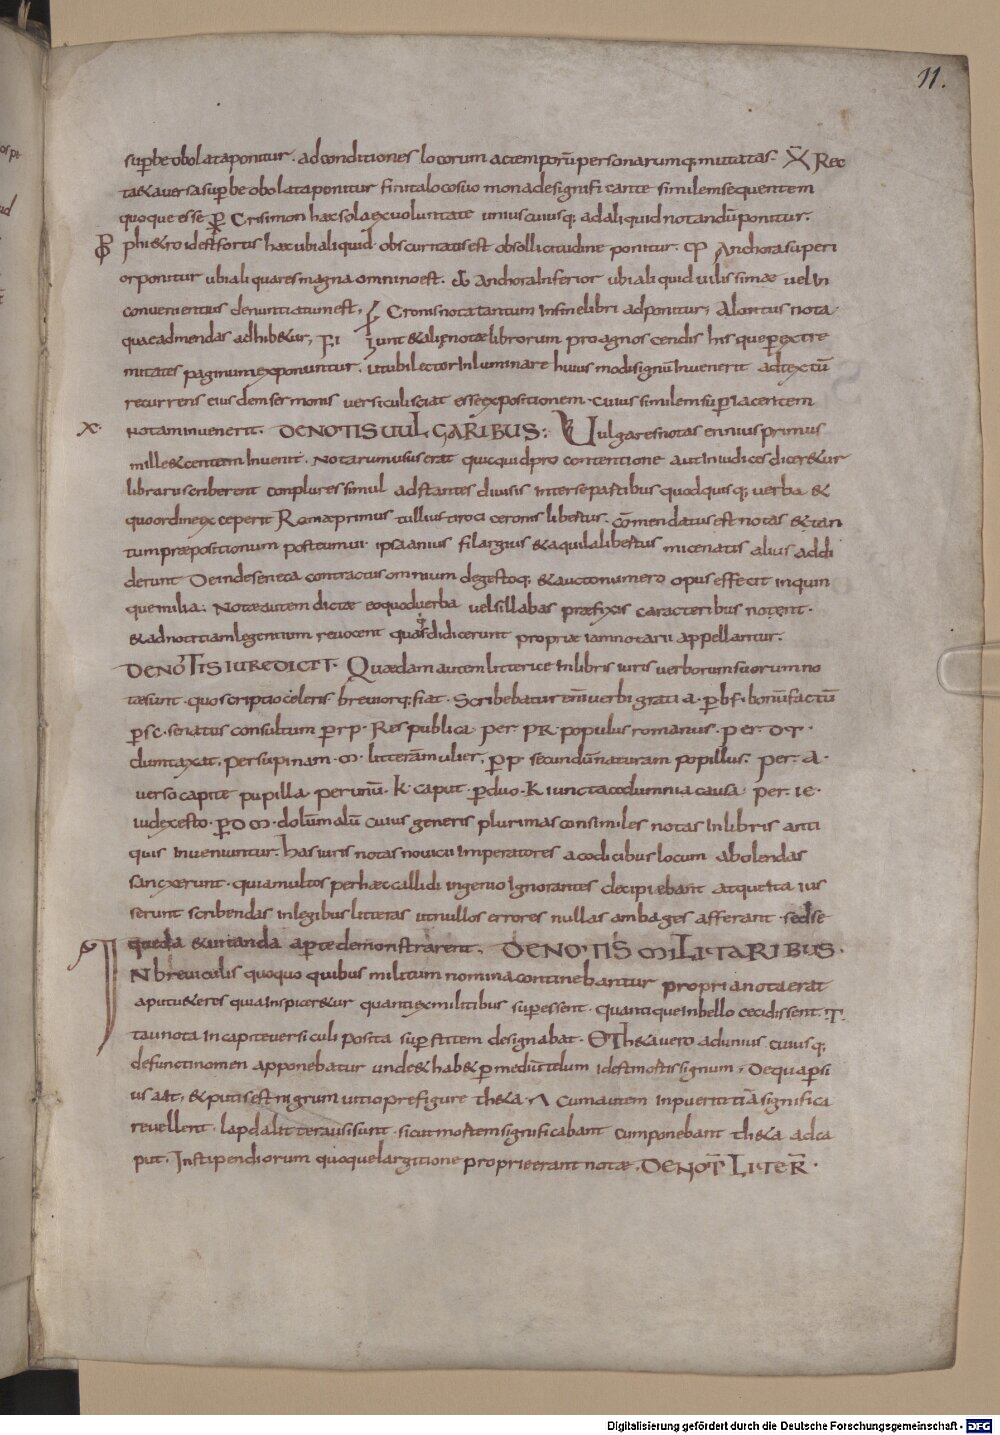 11.
sup̄be obolata ponitur. ad conditiones locorum ac temporū personarumq; mutatas. Rec
ta & aversa sup̄be obolata ponitur finitalocosuo monade significante similem sequentem
quoque esse Crisimon haec sola ex voluntate uniuscuiusq; ad aliquid notandū ponitur.
phi & ro id est fortis haec ubi aliquid obscuritatis est ob sollicitudine ponitur. Anchora superi
or ponitur ubi aliqua res magna omnino est. Anchora Inferior ubi aliquid vilissimae vel In
convenientius denuntiatum est, Cronis nota tantum In fine libri adponitur; Alontus nota
quae admendas adhib&ur, FI unt & alię notae librorum pro agnoscendis his que p̄ extre
mitates paginum exponuntur. ut ubi lector In luminare huius modi signū Invenerit ad textū
recurrens eiusdem sermonis versiculi sciat esse expositionem. cuius similem sup̄ iacentem
x. notam invenerit. DENOTIS UULGARIBUS: Uulgares notas ennius primus
mille & centem Invenit. Notarum usus erat quicquid pro contentione aut In iudices dicer&ur
librarii scriberent conplures simul adstantes divisis inter se partibus quod quisq; verba &
quo ordine exceperit Romae primus tullius tiro ciceronis libertus. cōmendatus est notas & tan
tum praepositionum post eum ui ipsanius filargius & aquila libertus micenatis alius addi
derunt Deinde seneca contractus omnium degestoq; & aucto numero opus effecit in quin
que milia; Notae autem dictae eo quod verba vel sillabas praefixis caracteribus notent.
& ad notitiam legentium revocent quas didicerunt propriae iam notarii appellantur.
DENOTIS IUREDICIT. Quaedam autem litterice In libris iuris verborum suorum no
tae sunt. quo scriptio celeris breviorq; fiat. Scribebatur enī verbi gratia. p̄ bf. bonū factū
p̄ sc. senatus consultum p̄ rp. Res publica. per. PR. populus romanus. per. DT.
dumtaxat. per supinam. m. litterā mulier. p̄ p. secundū naturam popillus. per. a.
verso capite pupilla. per unū. k. caput. p̄ duo. K iuncta codumnia causa. per. IE.
iudex esto. p̄ D M. dolū malū cuius generis plurimas consimiles notas In libris anti
quis inveniuntur. has iuris notas novicii imperatores a codicibus locum abolendas
sanxerunt. quia multos per haec callidi ingenio Ignorantes decipiaebant atque ita ius
serunt scribendas in legibus litteras ut nullos errores nullas ambages afferant. sed se
queda & uitanda apte demonstrarent. DENOTIS MILITARIBUS.
IN breviculis quoquo quibus militum nomina continebantur propria nota erat
aputu&eres qui a Inspicer&ur quanti ex militibus sup̄essent. quantique in bello cecidissent. T.
tau nota In capite versiculi posita sup̄stitem designabat. Eth&a vero ad unius cuiusq;
defuncti nomen apponebatur unde & hab& p̄ mediū telum id est mortis signum. De qua p̄si
us ait, & putis est nigrum vitio prefigure th&a. Λ Cum autem inpueritiā significa
revellent. lapdalit terausi sunt. sicut mortem significabant cum ponebant th&a ad ca
put. In stipendiorum quoque largitione propriae erant notae. DENOT̄ LITER̄.
Digitalisierung gefördert durch die Deutsche Forschungsgemeinschaft - DFG